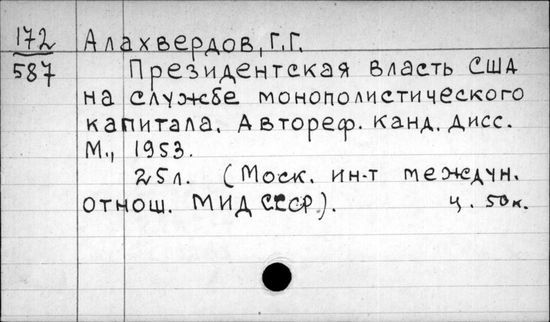 172 Алахвердов, Г.Г.
587 Президентская власть США
на службе монополистического
капитала. Автореф. канд. дисс.
М., 1953.
25л. (Моск. ин-т междун.
отнош. МИД СССР.). ц. 50к.